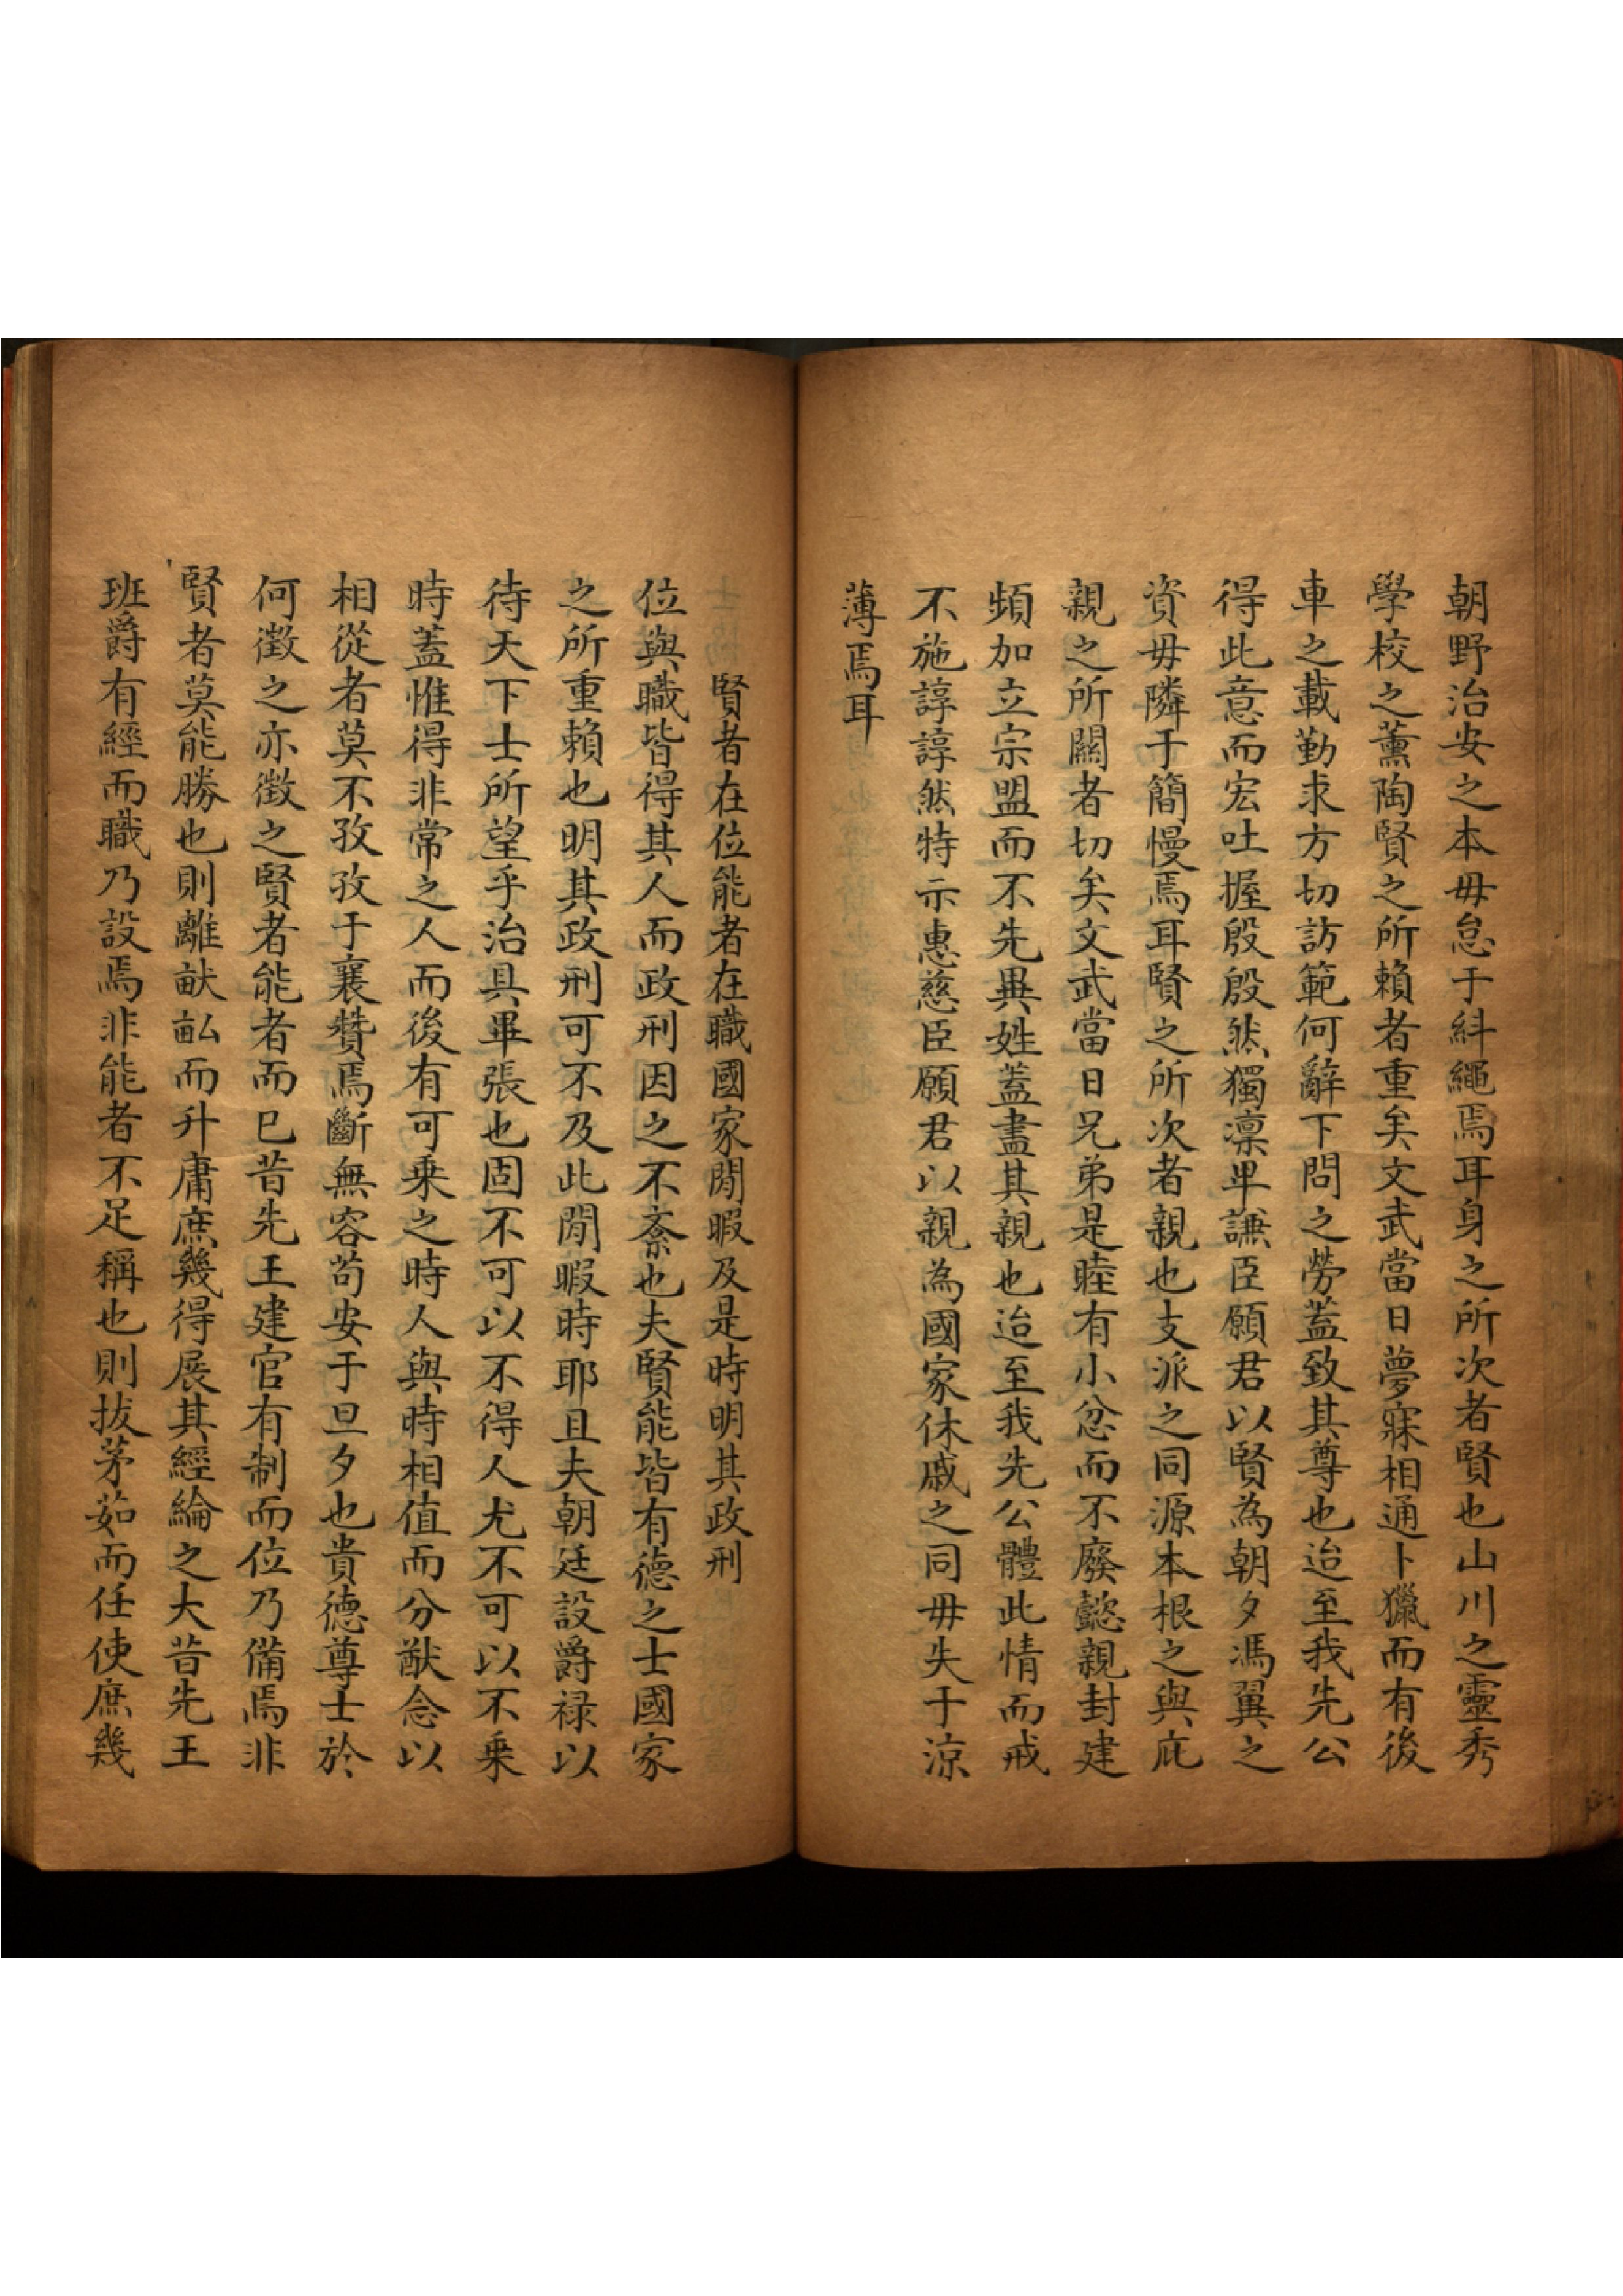 朝野治安之本毋怠于糾繩焉耳身之所次者賢也山川之靈秀
學校之薰陶賢之所賴者重矣文武當日夢寐相通卜獵而有後
車之載勤求方切訪範何辭下問之勞蓋致其尊也迨至我先公
得此意而宏吐握殷殷然獨凛卑謙臣願君以賢為朝夕馮翼之
資毋隣于簡慢焉耳賢之所次者親也支派之同源本根之與庇
親之所關者切矣文武當日兄弟是睦有小忿而不廢懿親封建
頻加立宗盟而不先異姓蓋盡其親也迨至我先公體此情而戒
不施諄諄然特示惠慈臣願君以親為國家休戚之同毋失于涼
薄焉耳
賢者在位能者在職國家閒暇及是時明其政刑
位與職皆得其人而政刑因之不紊也夫賢能皆有德之士國家
之所重賴也明其政刑可不及此閒暇時耶且夫朝廷設爵祿以
待天下士所望乎治具畢張也固不可以不得人尤不可以不乘
時蓋惟得非常之人而後有可乘之時人與時相值而分猷念以
相從者莫不孜孜于襄贊焉斷無容苟安于旦夕也貴德尊士於
何徵之亦徵之賢者能者而已昔先王建官有制而位乃備焉非
賢者莫能勝也則離畎畝而升庸庶幾得展其經綸之大昔先王
班爵有經而職乃設焉非能者不足稱也則拔茅茹而任使庶幾